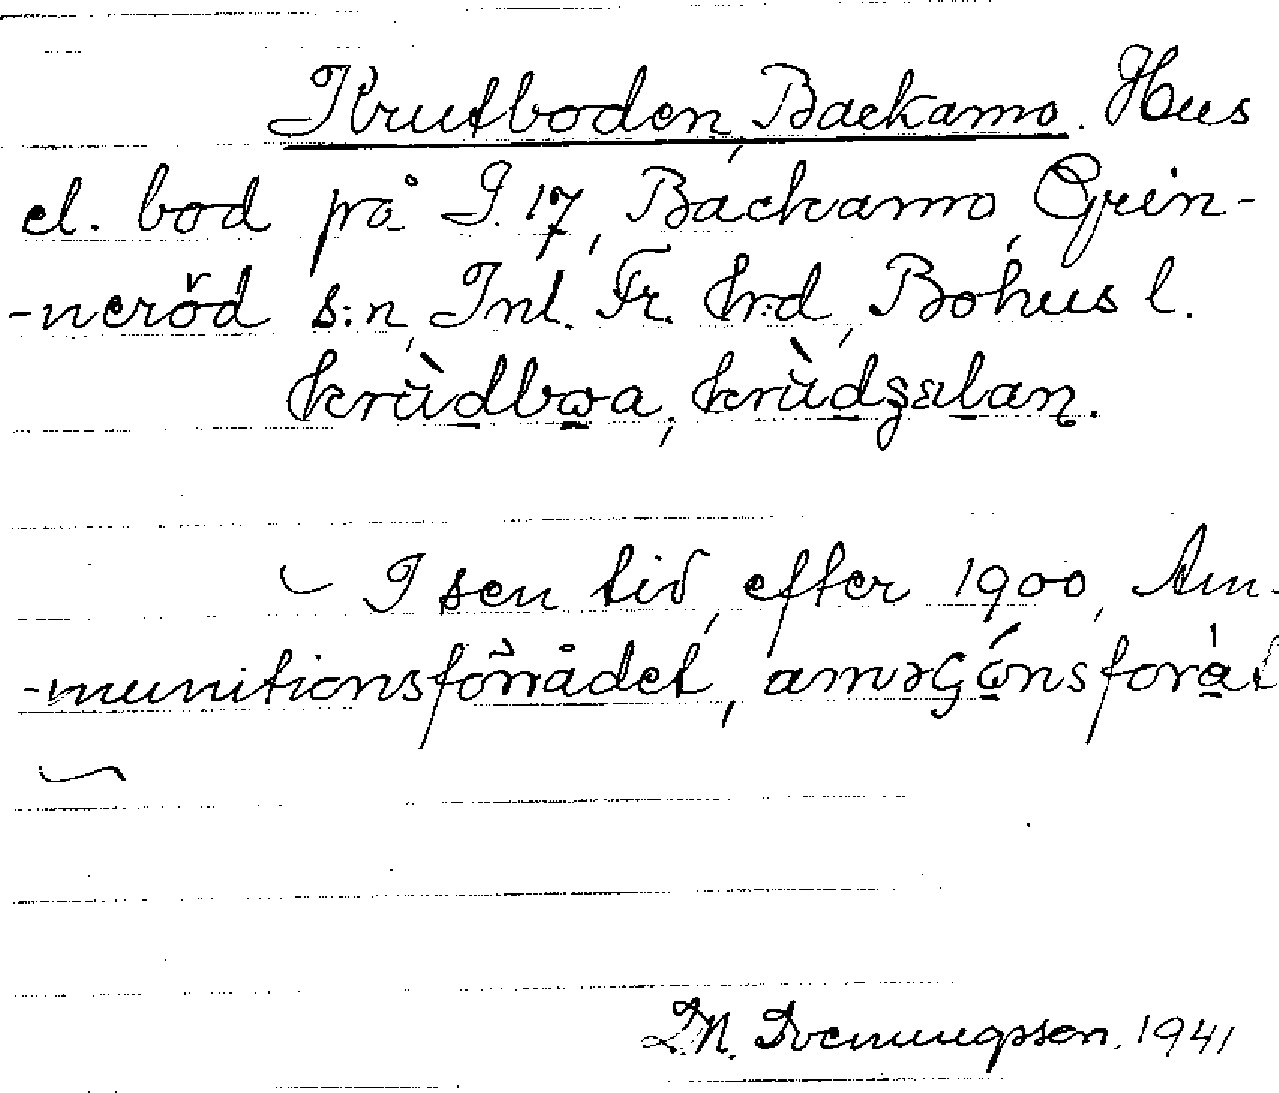 Krutboden, Backamo. Hus
el. bod på I. 17, Backamo, Grin-
-neröd s:n, Inl. Fr. hrd, Bohusl.
krùdbωa, krùdʒalan.
I sen tid, efter 1900, Am-
-munitionsförrådet, aməʂónsforåt
S.N. Svenungsson. 1941